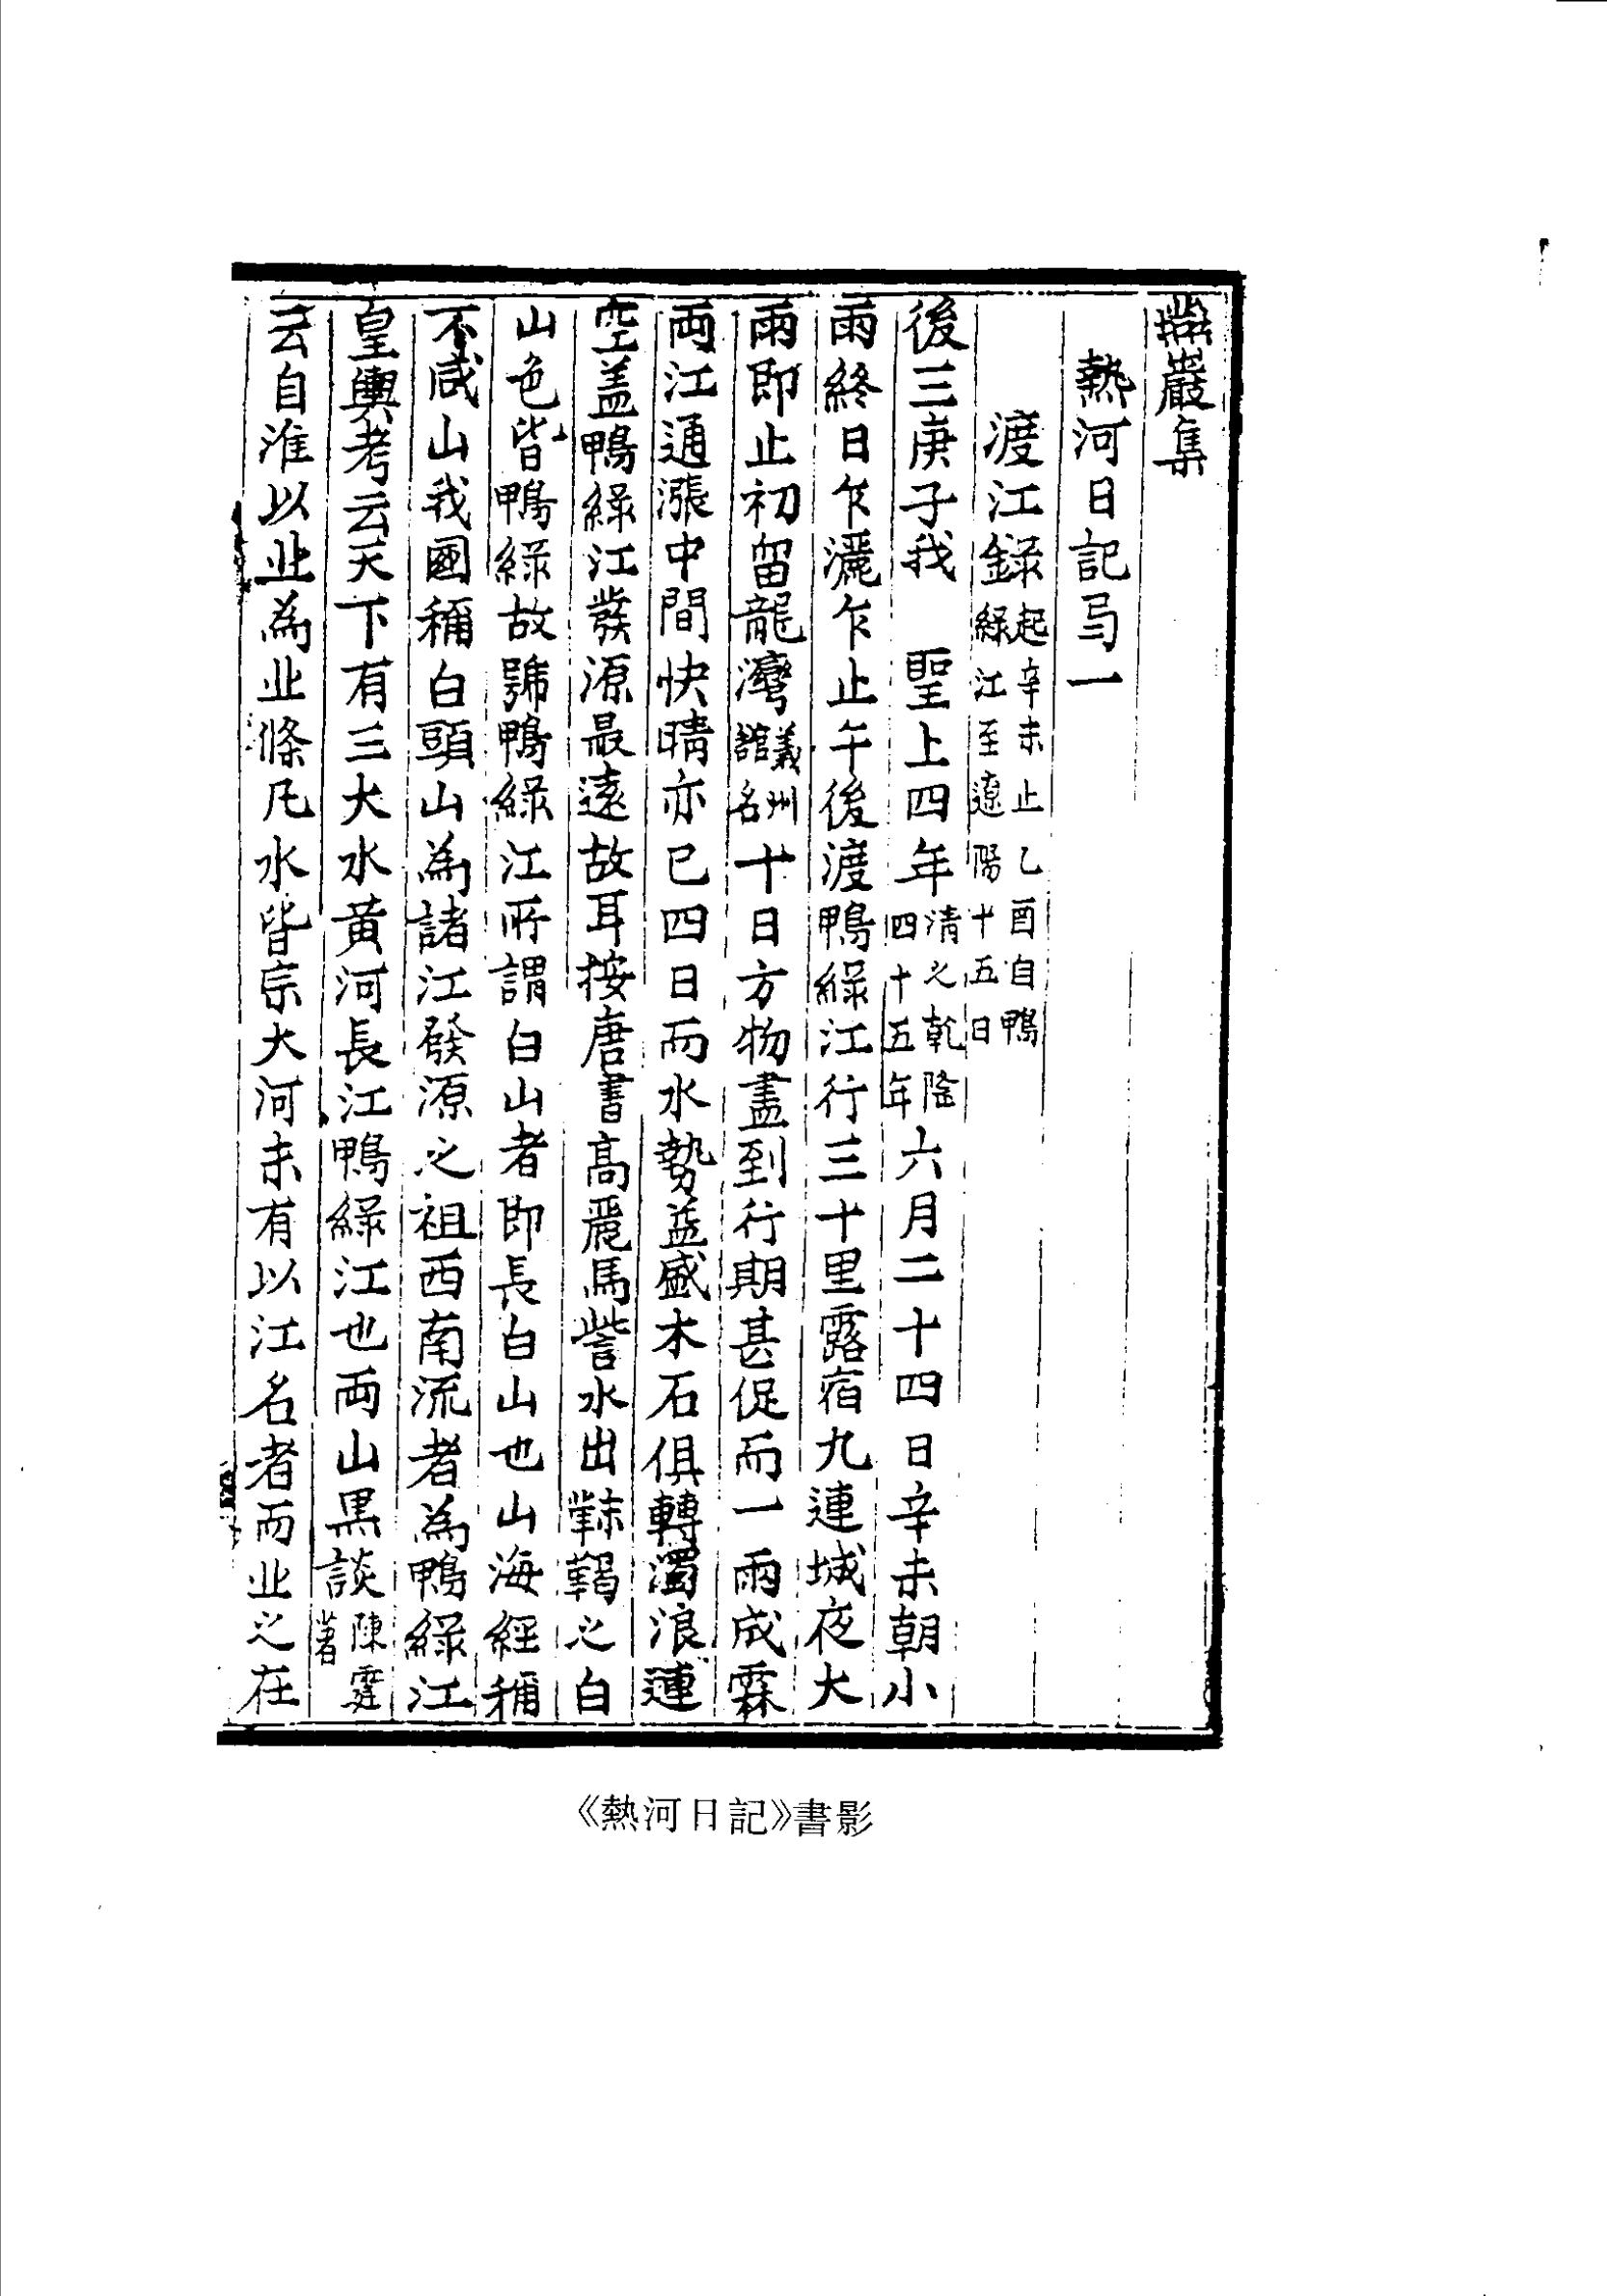 燕巖集
熱河日記㢧一
渡江錄起辛未止乙酉自鴨綠江至遼陽十五日
後三庚子我 聖上四年清之乾隆四十五年六月二十四日辛未朝小
雨終日乍灑乍止午後渡鴨綠江行三十里露宿九連城夜大
雨即止初留龍灣義州舘名十日方物盡到行期甚促而一雨成霖
兩江通漲中間快晴亦已四日而水勢益盛木石俱轉濁浪連
空盖鴨綠江發源最遠故耳按唐書高麗馬訾水出靺鞨之白
山色皆鴨綠故號鴨綠江所謂白山者即長白山也山海經稱
不咸山我國稱白頭山為諸江發源之祖西南流者為鴨綠江
皇輿考云天下有三大水黃河長江鴨綠江也両山黒談陳霆著
云自淮以北為北條凡水皆宗大河未有以江名者而北之在
《熱河日記》書影